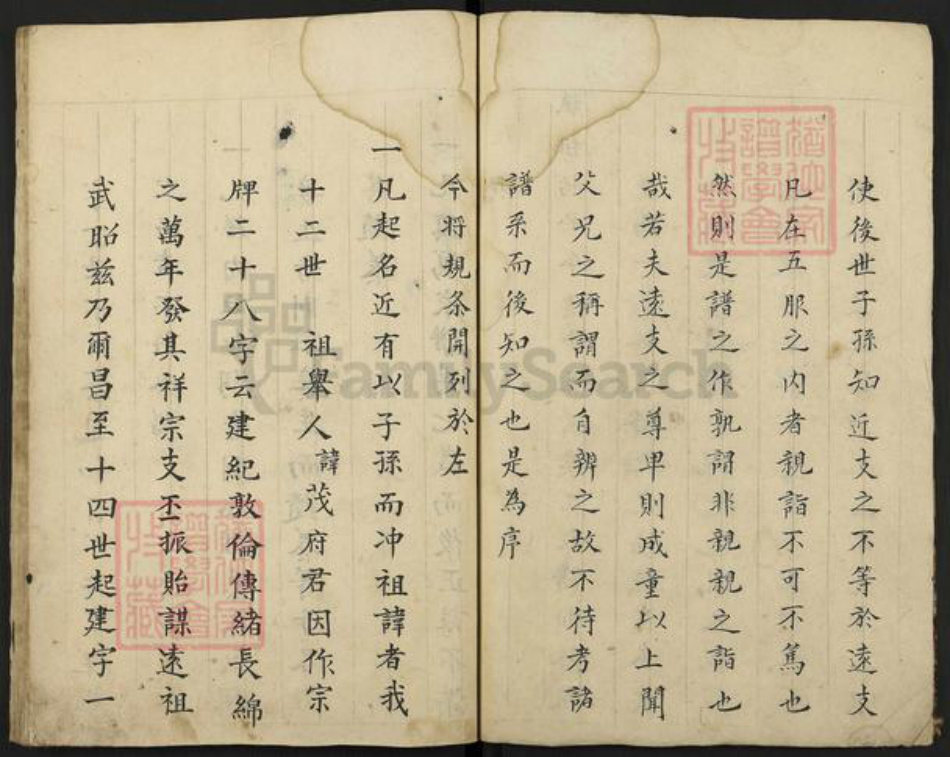 使後世子孫知近支之不等於遠支
凡在五服之内者親誼不可不篤也
然則是譜之作孰謂非親親之誼也
哉若夫遠支之尊卑則成童以上聞
父兄之稱謂而自辨之故不待考諸
譜系而後知之也是為序
今將規条開列於左
一凡起名近有以子孫而冲祖諱者我
十二世 祖舉人諱茂府君因作宗
牌二十八字云建紀敦倫傳緒長綿
之萬年發其祥宗支丕振貽謀遠祖
武昭茲乃爾昌至十四世起建字一
FamilySearch